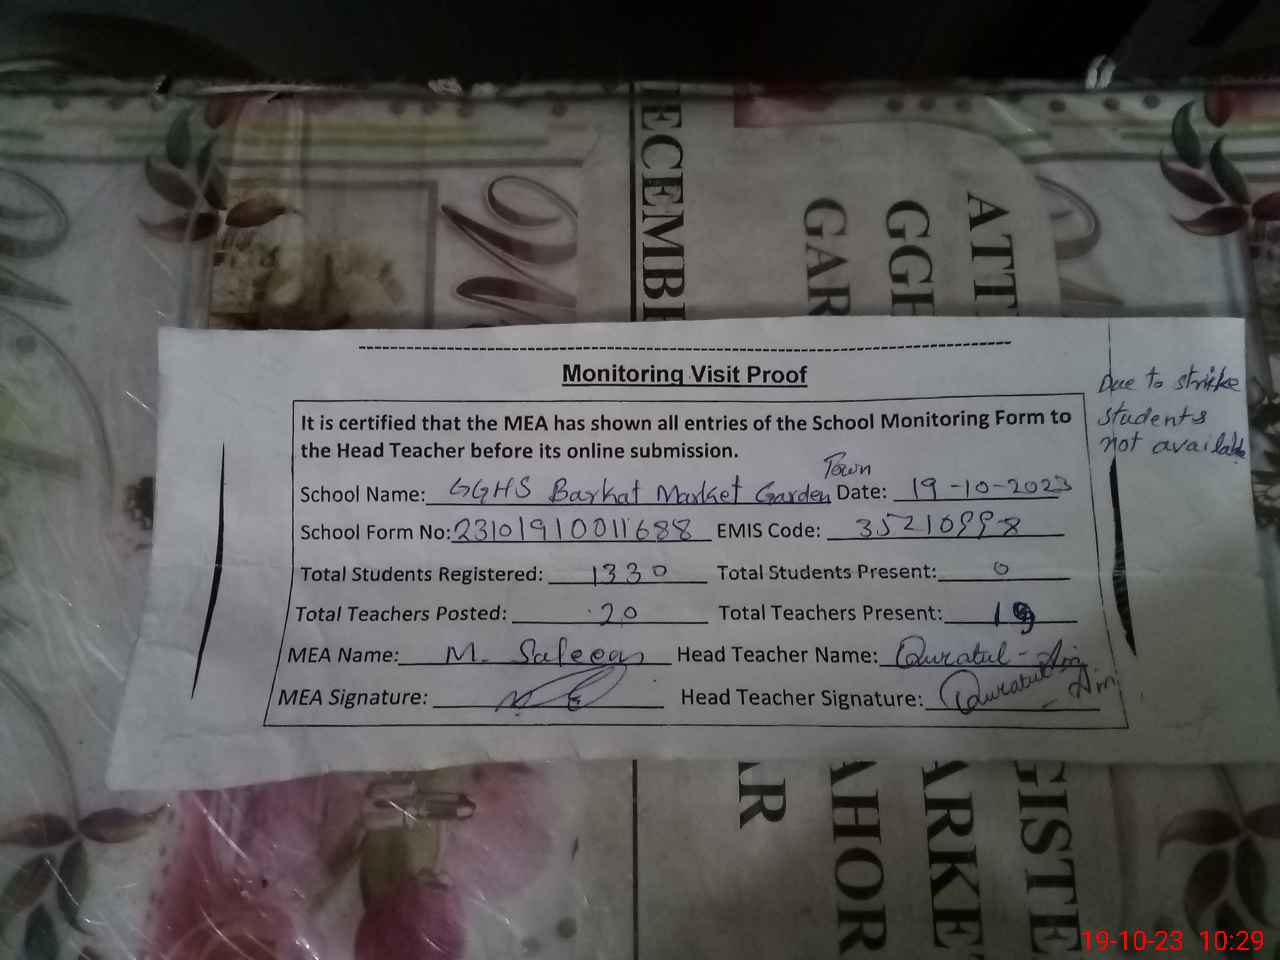 ECEMBE
GAR
GGH
ATT
Monitoring Visit Proof
Due to strike
students
not available
It is certified that the MEA has shown all entries of the School Monitoring Form to
the Head Teacher before its online submission.
Town
School Name: GGHS Barkat Market Garden Date: 19-10-2023
School Form No: 23101910011688 EMIS Code: 35210998
Total Students Registered: 1330 Total Students Present: 0
Total Teachers Posted: 20 Total Teachers Present: 19
MEA Name: M. Saleem Head Teacher Name: Quratul-Ain
MEA Signature: Head Teacher Signature: Quratul-Ain
AR
AHOR
ARKE
GISTE
19-10-23 10:29